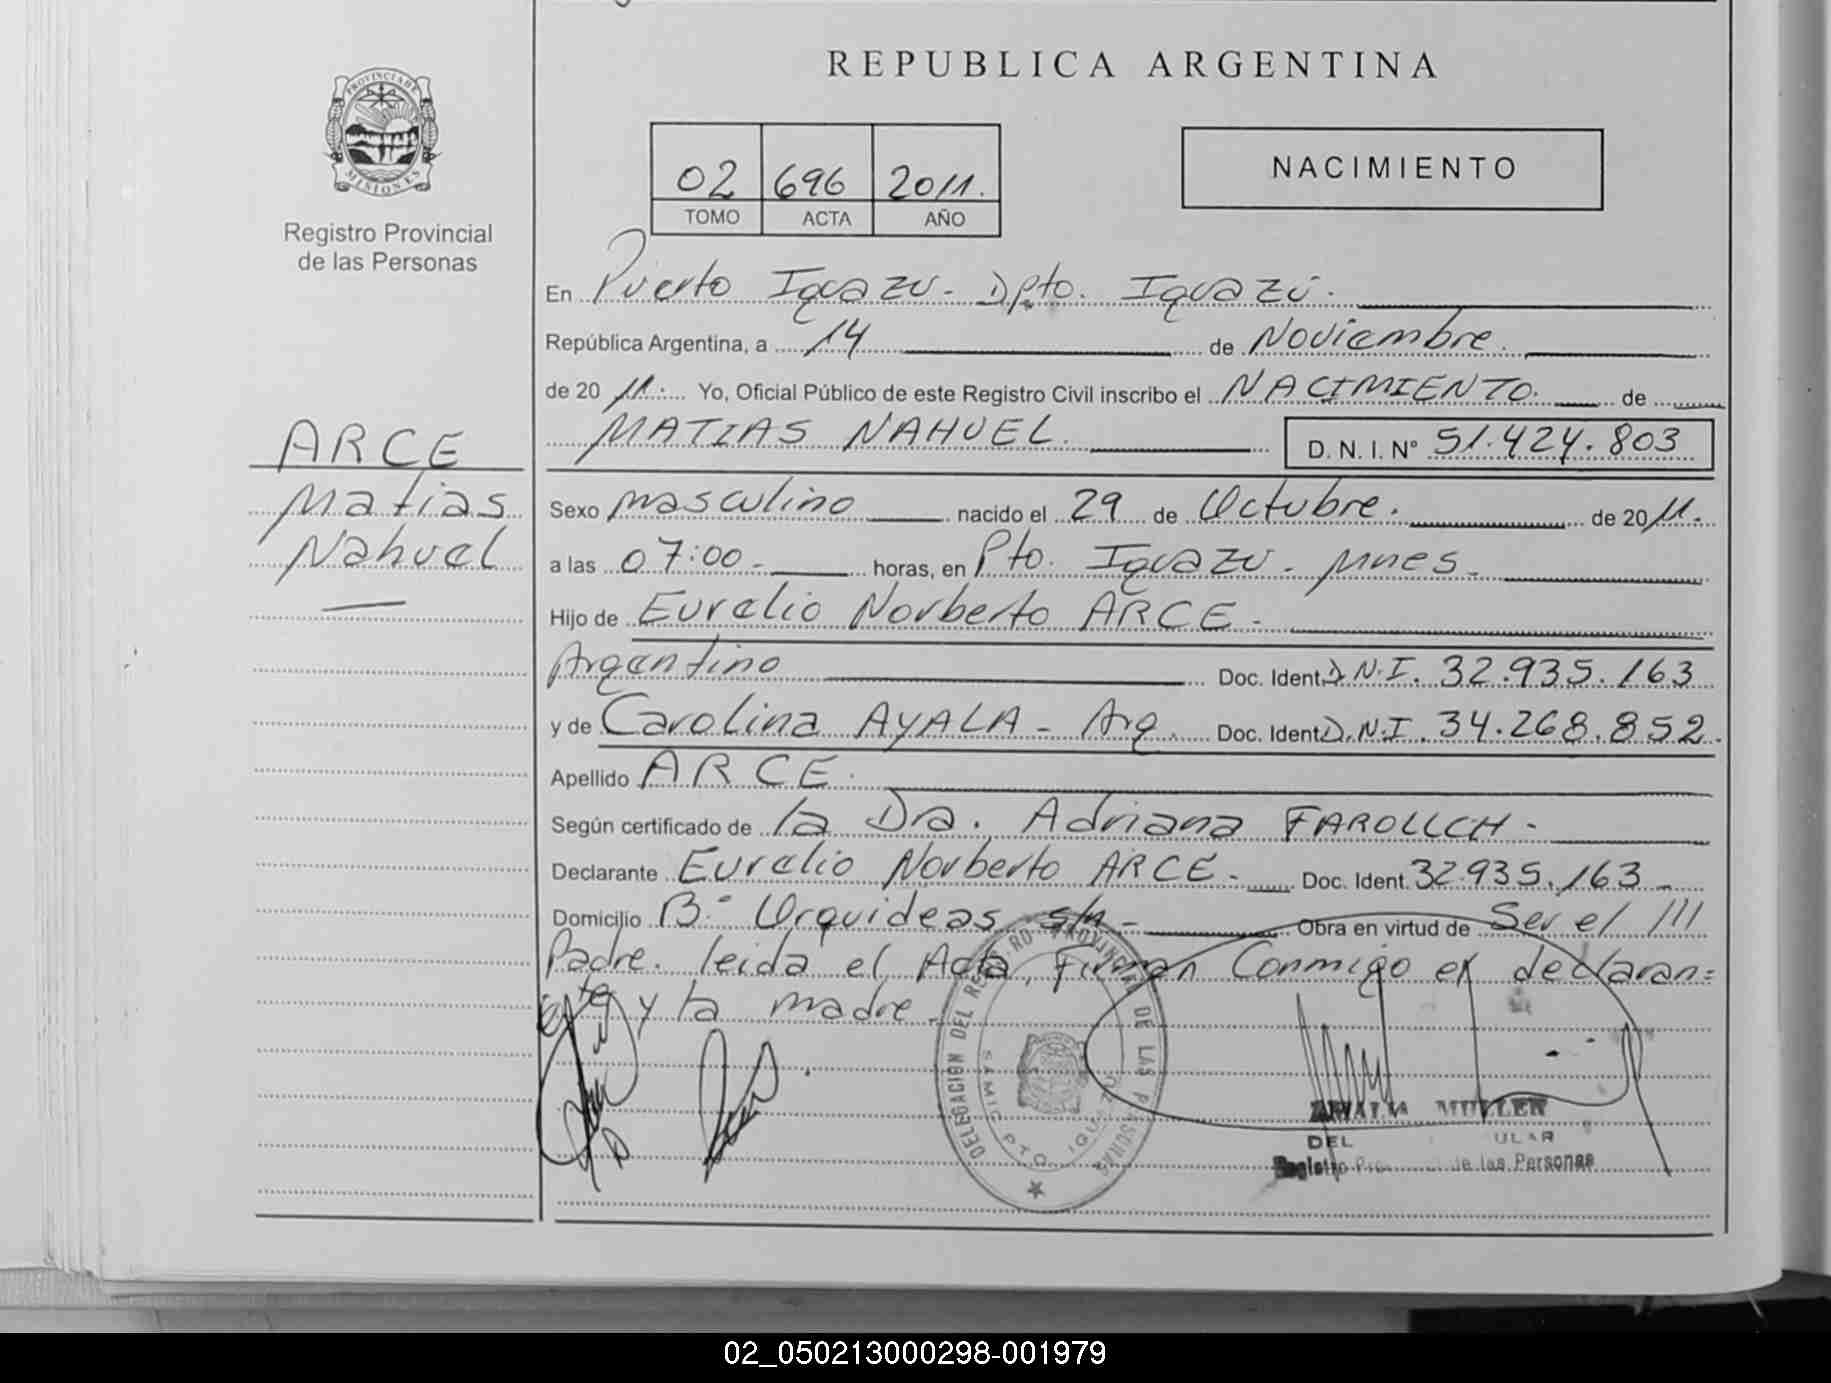 REPUBLICA ARGENTINA
PROVINCIA DE
MISIONES
Registro Provincial
de las Personas
02 696 2011.
TOMO ACTA AÑO
NACIMIENTO
ARCE
Matias
Nahuel
En Puerto Iguazu - Dpto. Iguazú.
República Argentina, a 14 de Noviembre.
de 20 11. Yo, Oficial Público de este Registro Civil inscribo el NACIMIENTO. de
MATIAS NAHUEL. D. N. I. N° 51.424.803
Sexo masculino nacido el 29 de Octubre. de 20 11.
a las 07:00 - horas, en Pto. Iguazu - Mnes -
Hijo de Eurelio Norberto ARCE -
Argentino Doc. Ident. D.N.I. 32.935.163
y de Carolina AYALA - Arg. Doc. Ident. D.N.I. 34.268.852.
Apellido ARCE.
Según certificado de la Dra. Adriana FAROLLCH -
Declarante Eurelio Norberto ARCE - Doc. Ident. 32.935.163 -
Domicilio B° Orquideas s/n - Obra en virtud de Ser el ///
Padre. leida el Acta, Firman Conmigo el declaran=
te y la madre.
DELEGACION DEL REGISTRO PROVINCIAL DE LAS PERSONAS
SAMIC PTO. IGUAZU
MULLER
Registro Provincial de las Personas
02_050213000298-001979